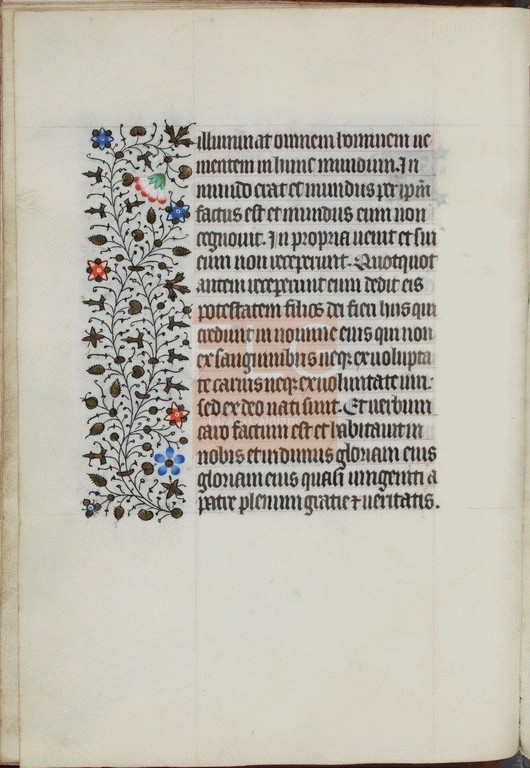 illuminat omnem hominem ue
nientem in hunc mundum. In
mundo erat et mundus per ipm̄
factus est et mundus eum non
cognouit. In propria uenit et sui
eum non receperunt. Quotquot
autem receperunt eum dedit eis
potestatem filios dei fieri hiis qui
credunt in nomine eius qui non
ex sanguinibus neqꝫ ex uolupta
te carnis neqꝫ ex uoluntate uiri.
sed ex deo nati sunt. Et uerbum
caro factum est et habitauit in
nobis et uidimus gloriam eius
gloriam eius quasi unigeniti a
patre plenum gratie ⁊ ueritatis.